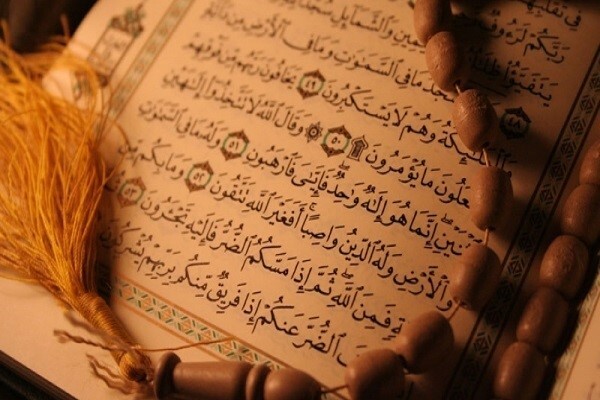 فِى تَقَلُّبِهِمْ
رَبَّكُمْ لَرَءُوفٌ
يَتَفَيَّؤُا۟ ظِلَٰلُهُۥ وَٱلشَّمَآئِلِ سُجَّدًا
مَا فِى ٱلسَّمَٰوَٰتِ وَمَا فِى ٱلْأَرْضِ مِن دَآبَّةٍ
وَهُمْ لَا يَسْتَكْبِرُونَ ٤٩ يَخَافُونَ رَبَّهُم مِّن فَوْقِهِمْ
مَا يُؤْمَرُونَ ۩ ٥٠ ۞ وَقَالَ ٱللَّهُ لَا تَتَّخِذُوٓا۟ إِلَٰهَيْنِ
إِنَّمَا هُوَ إِلَٰهٌ وَٰحِدٌ فَإِيَّٰىَ فَٱرْهَبُونِ ٥١ وَلَهُۥ مَا فِى ٱلسَّمَٰوَٰتِ
وَٱلْأَرْضِ وَلَهُ ٱلدِّينُ وَاصِبًا أَفَغَيْرَ ٱللَّهِ تَتَّقُونَ ٥٢ وَمَا بِكُم مِّن
فَمِنَ ٱللَّهِ ثُمَّ إِذَا مَسَّكُمُ ٱلضُّرُّ فَإِلَيْهِ تَجْـَٔرُونَ ٥٣
ٱلضُّرَّ عَنكُمْ إِذَا فَرِيقٌ مِّنكُم بِرَبِّهِمْ يُشْرِكُونَ